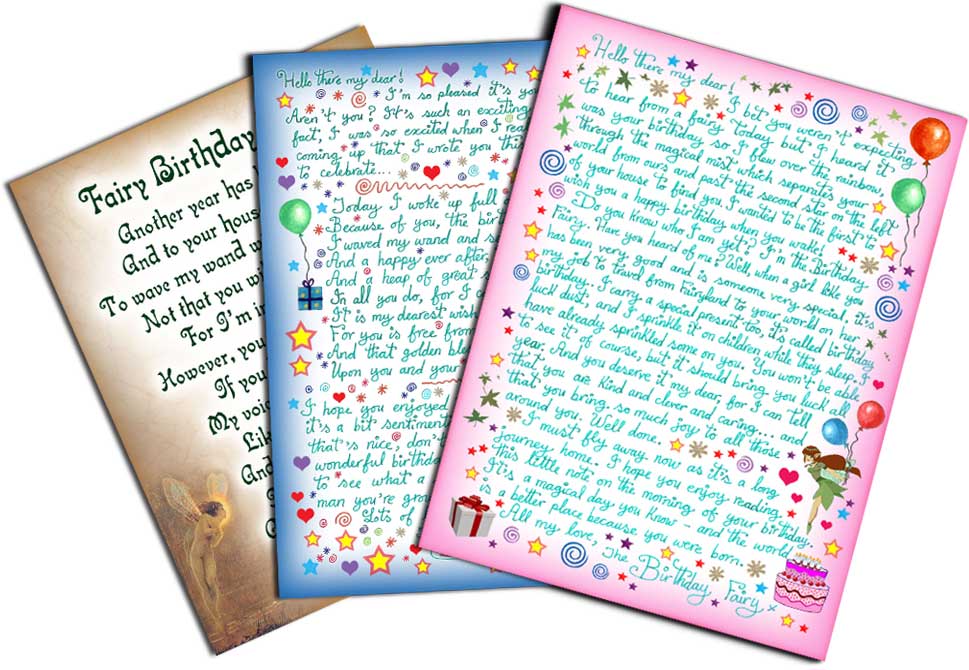 Fairy Birthday
Another year has
And to your hous
To wave my wand w
Not that you wi
For I'm in
However, you
If you
My voi
Lik
And
Hello there my dear!
I'm so pleased it's yo
Aren't you? It's such an exciting
fact, I was so excited when I rea
coming up that I wrote you thi
to celebrate...
Today I woke up full o
Because of you, the birt
I waved my wand and se
And a happy ever after,
And a heap of great s
In all you do, for I a
It is my dearest wish
For you is free from
And that golden ble
Upon you and your
I hope you enjoyed
it's a bit sentiment
that's nice, don't
wonderful birthd
to see what a
man you're gro
Lots of
Hello there my dear!
I bet you weren't expecting
to hear from a fairy today but I heard it
was your birthday so I flew over the rainbow,
through the magical mist which separates your
world from ours and past the second star on the left
of your house, to find you. I wanted to be the first to
wish you a happy birthday when you wake!
Do you know who I am yet? I'm the Birthday
Fairy. Have you heard of me? Well, when a girl like you
has been very good and is someone very special, it's
my job to travel from Fairyland to your world on her
birthday. I carry a special present too, it's called birthday
luck dust, and I sprinkle it on children while they sleep. I
have already sprinkled some on you. You won't be able
to see it of course, but it should bring you luck all
year. And you deserve it my dear, for I can tell
that you are kind and clever and caring... and
that you bring so much joy to all those
around you. Well done.
I must fly away now as it's a long
journey home. I hope you enjoy reading
this little note on the morning of your birthday.
It's a magical day you know - and the world
is a better place because you were born.
All my love, The Birthday Fairy x